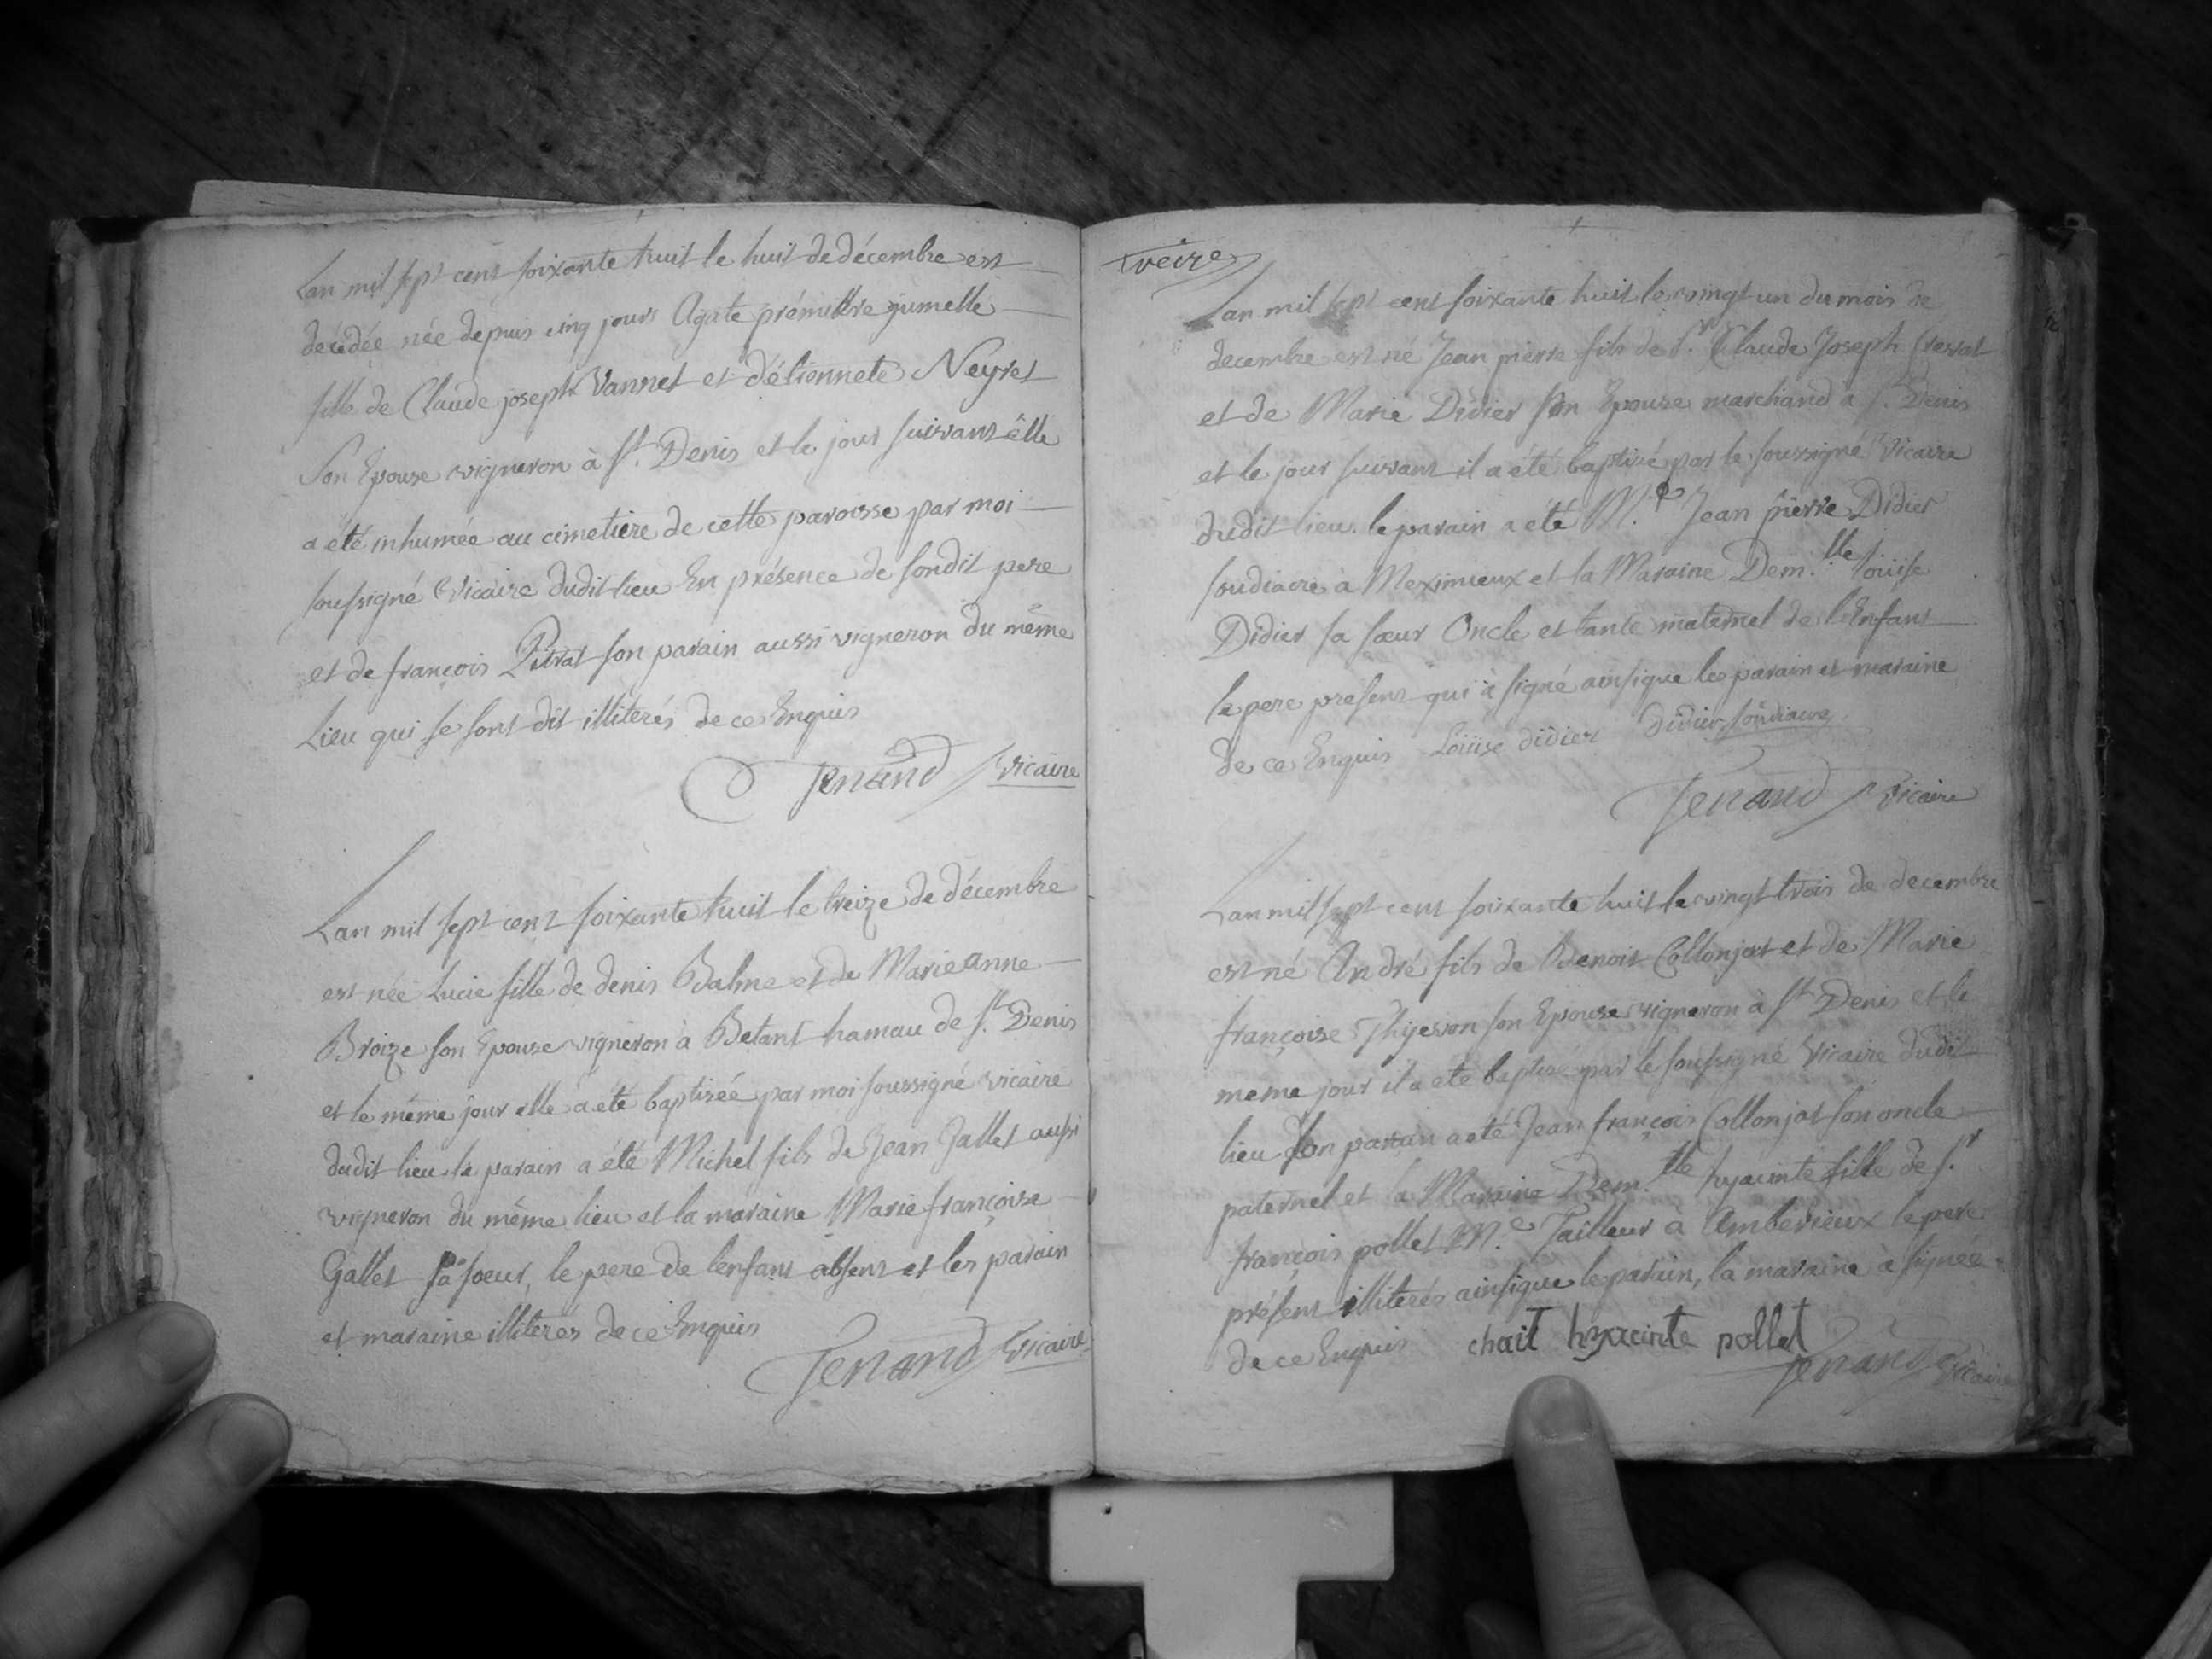 Lan mil sept cent soixante huit le huit de décembre est
décédée née depuis cinq jours Agate prémiere jumelle
fille de Claude joseph Vannet et d'étionnete Neyret
Son Epouse vigneron à St. Denis et le jour suivant élle
a été inhumée au cimetiere de cette paroisse par moi
soussigné Vicaire dudit lieu En présence de sondit pere
et de françois Pitrat son parain aussi vigneron du même
Lieu qui se sont dit illiterés de ce Enquis
Jenand Vicaire
Lan mil sept cent soixante huit le treize de décembre
est née Lucie fille de denis Balme et de Marie anne
Broize son Epouse vigneron à Betant hamau de St. Denis
et le même jour elle a été baptisée par moi soussigné vicaire
dudit lieu le parain a été Michel fils de Jean Gallet aussi
vigneron du même lieu et la maraine Marie françoise
Gallet sa soeur, le pere de lenfant absent et les parain
et maraine illiterés de ce Enquis
Jenand Vicaire
treize
Lan mil sept cent soixante huit le vingt un du mois de
decembre est né Jean pierre fils de Sr. Claude Joseph Cresat
et de Marie Didier son Epouse marchand à St. Denis
et le jour suivant il a été baptisé par le soussigné Vicaire
dudit lieu. le parain a été M.e Jean pierre Didier
soudiacre à Meximieux et la Maraine Dem.lle Loüise
Didier sa sœur Oncle et tante maternel de l'Enfant
le pere présent qui à signé ainsique les parain et maraine
de ce Enquis Loüise didier Didier soudiacre
Jenand Vicaire
Lan mil sept cent soixante huit le vingt trois de decembre
est né André fils de Benoit Collonjat et de Marie
françoise son Epouse vigneron à St Denis et le
meme jour il a été baptisé par le soussigné Vicaire dudit
lieu Son parain a été Jean françois Collonjat son oncle
paternel et la Maraine Dem.lle hyacinte fille de Sr
françois pollet M.e Tailleur à Ambérieux le pere
présent illiterés ainsique le parain, la maraine à signée
de ce Enquis hyacinte pollet
Jenand Vicaire